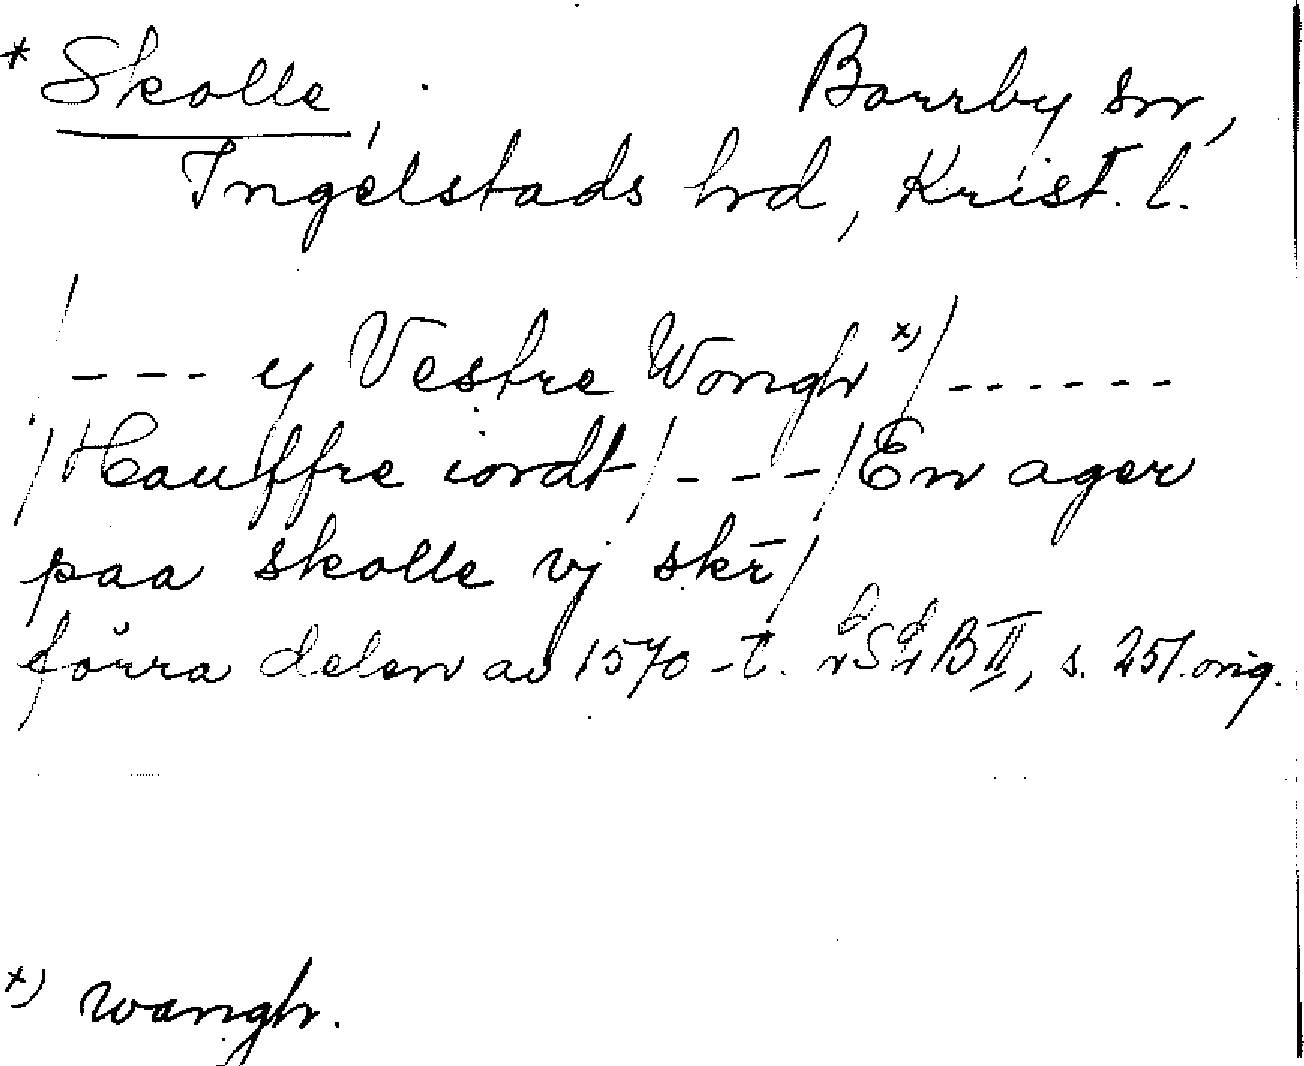 * Skolle, Borrby sn,
Ingelstads hrd, Krist. l.
/--- y Vestre Wongh *)/------
/Hauffre iordt/---/En ager
paa skolle vj skr/
förra delen av 1570-t. B II, s. 251. orig.
*) wangh.